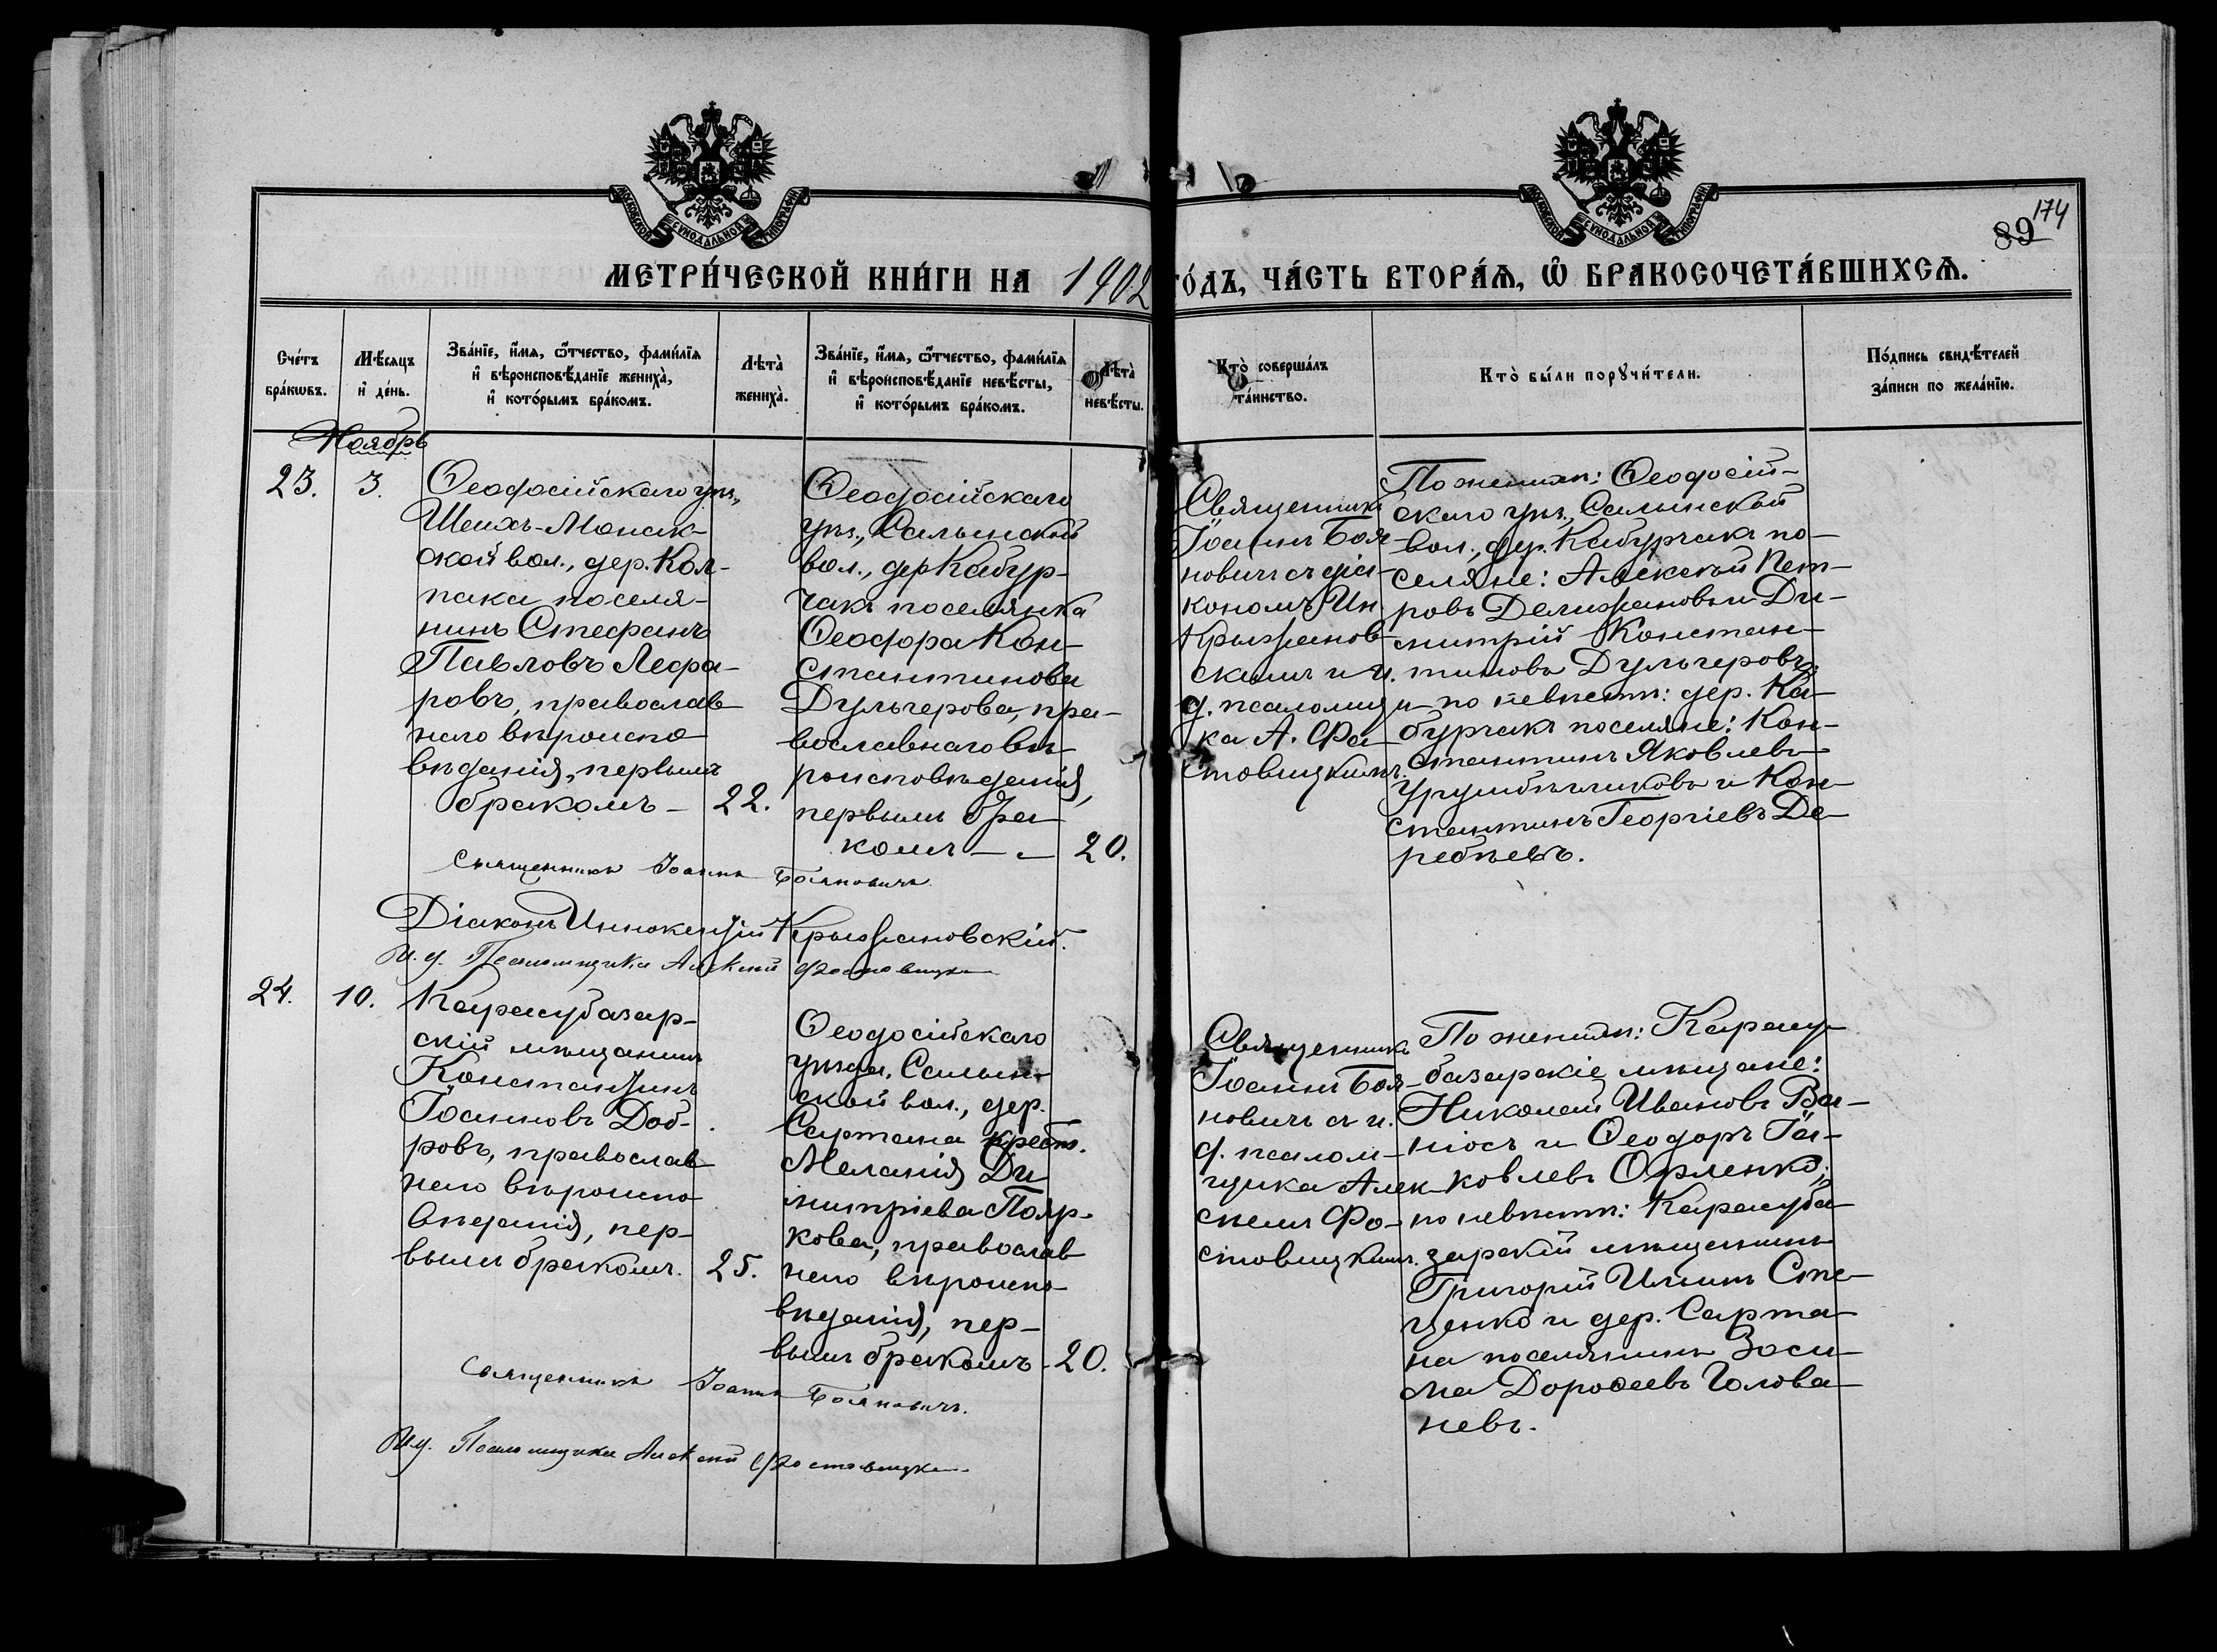 МОСКОВСКОЙ СѴНОДАЛЬНОЙ ТИПОГРАФІИ
МОСКОВСКОЙ СѴНОДАЛЬНОЙ ТИПОГРАФІИ
174
89
МЕТРИ́ЧЕСКОЙ КНИ́ГИ НА 1902 ГО́ДЪ, ЧА́СТЬ ВТОРА́Ѧ, Ѡ҆ БРАКОСОЧЕТА́ВШИХСѦ.
Сче́тъ
бра́кѡвъ.
Мѣ́сяцъ
и҆ де́нь.
Зва́нїе, и҆́мѧ, ѻ҆́тчество, фами́лїѧ
и҆ вѣроисповѣ́данїе жениха̀,
и҆ кото́рымъ бра́комъ.
Лѣта̀
жениха̀.
Зва́нїе, и҆́мѧ, ѻ҆́тчество, фами́лїѧ
и҆ вѣроисповѣ́данїе невѣ́сты,
и҆ кото́рымъ бра́комъ.
Лѣта̀
невѣ́сты.
Кто̀ соверша́лъ
та́инство.
Кто̀ бы́ли порꙋчи́тели.
По́дпись свидѣ́телей
за́писи по жела́нїю.
Ноябрь
23.
3.
Ѳеодосійскаго уѣз.,
Шеихъ-Монак-
ской вол., дер. Кол-
пака поселя-
нинъ Стефанъ
Павловъ Лефа-
ровъ, православ
наго вѣроиспо
вѣданія, первымъ
бракомъ — 22.
Ѳеодосійскаго
уѣз., Салынской
вол., дер Кабур-
чакъ поселянка
Ѳеодора Кон-
стантинова
Дульгерова, пра-
вославнаго вѣ-
роисповѣданія,
первымъ бра-
комъ — 20.
Священникъ
Іоаннъ Боя-
новичъ съ діа-
кономъ Ин.
Крыжанов-
скимъ и и.
д. псаломщи-
ка А. Фо-
стовицкимъ.
По женихѣ: Ѳеодосій-
скаго уѣз., Салынской
вол., дер. Кабурчакъ по-
селяне: Алексѣй Пет-
ровъ Делижановъ и Ди-
митрій Констан-
тиновъ Дульгеровъ;
по невѣстѣ: дер. Ка-
бурчакъ поселяне: Кон-
стантинъ Яковлевъ
и Кон-
стантинъ Георгіевъ Де-
ребѣевъ.
Священникъ Іоаннъ Бояновичъ.
Діаконъ Иннокентій Крыжановскій.
И.д. Псаломщика Алексѣй Фостовицкій
24.
10.
Карасубазар-
скій мѣщанинъ
Константинъ
Іоанновъ Доб-
ровъ, православ
наго вѣроиспо
вѣданія, пер-
вымъ бракомъ. 25.
Ѳеодосійскаго
уѣзда, Салын-
ской вол., дер.
Сартана крест.
Меланія Ди
митріева Пояр-
кова, православ
наго вѣроиспо
вѣданія, пер-
вымъ бракомъ — 20.
Священникъ
Іоаннъ Боя-
новичъ съ и.
д. псалом-
щика Алек-
сѣемъ Фо-
стовицкимъ.
По женихѣ: Карасу-
базарскіе мѣщане:
Николай Ивановъ Ва-
ніосъ и Ѳеодоръ Іа-
ковлевъ Орленко;
по невѣстѣ: Карасуба
зарскій мѣщанинъ
Григорій Ильинъ Сте-
ценко и дер. Сарта-
на поселянинъ Зоси-
ма Дороѳеевъ Голова-
невъ.
Священникъ Іоаннъ Бояновичъ.
И.д. Псаломщика Алексѣй Фостовицкій